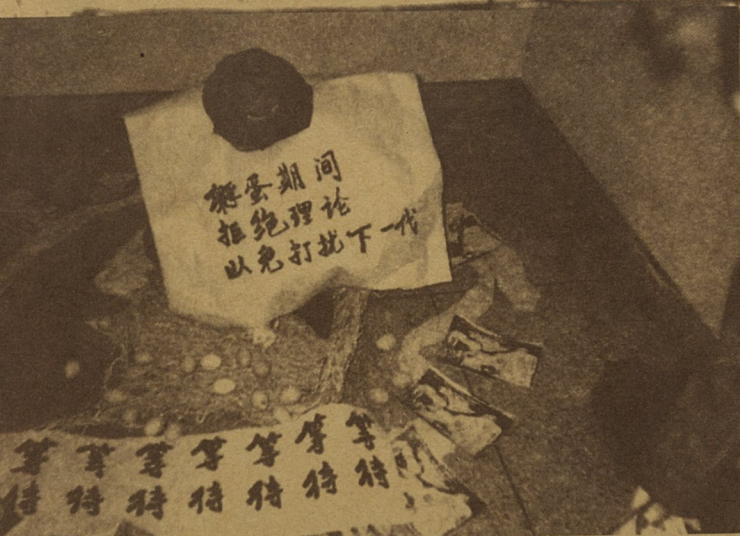 孵蛋期间
拒绝理论
以免打扰下一代
等 等 等 等 等 等 等
待 待 待 待 待 待 待